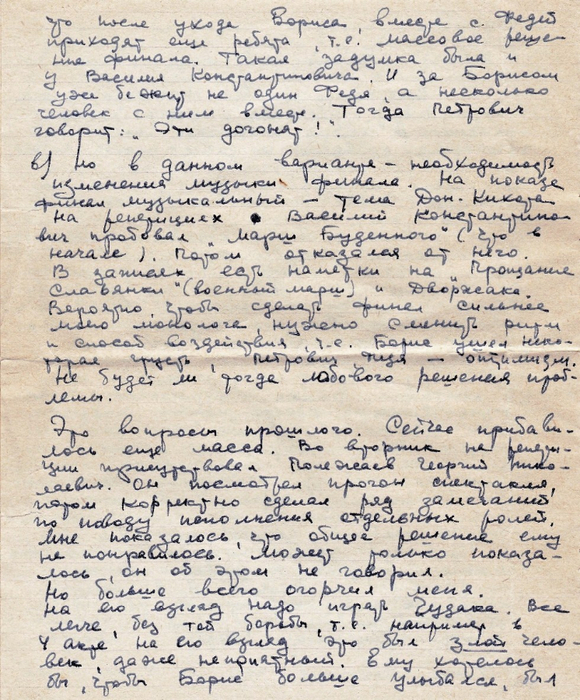 что после ухода Бориса вместе с Федей
приходят еще ребята, т.е. массовое реше-
ние финала. Такая задумка была и
у Василия Константиновича. И за Борисом
уже бежит не один Федя, а несколько
человек с ним вместе. Тогда Петрович
говорит: „Эти догонят!".
в) Но в данном варианте – необходимость
изменения музыки финала. На показе
финал музыкальный – тема Дон-Кихота
На репетициях Василий Константино-
вич пробовал „Марш Буденного" (что в
начале). Потом отказался от него.
В записях есть наметки на „Прощание
Славянки" (военный марш) и Дворжака.
Вероятно, чтобы сделать финал сильнее
моего монолога, нужно сменить ритм
и способ воздействия, т.е. Борис ушел неко-
торая грусть, Петрович – оптимизм.
Не будет ли тогда лобового решения проб-
лемы.
Это вопросы прошлого. Сейчас прибави-
лось еще масса. Во вторник на репети-
ции присутствовал Полежаев Георгий Нико-
лаевич. Он посмотрел прогон спектакля,
потом корректно сделал ряд замечаний
по поводу исполнения отдельных ролей.
Мне показалось, что общее решение ему
не понравилось. Может только показа-
лось, он об этом не говорил.
Но больше всего огорчил меня.
На его взгляд надо играть Чудака. Все
легче, без той борьбы, т.е. например в
4 акте, на его взгляд, это был злой чело-
век, даже неприятный. Ему хотелось
бы, чтобы Борис больше улыбался, был